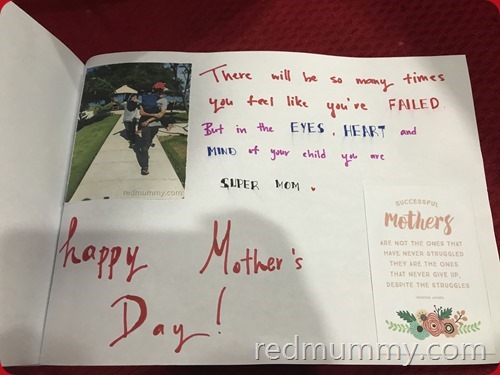 There will be so many times
you feel like you've FAILED
But in the EYES, HEART and
MIND of your child you are
SUPER MOM
redmummy.com
happy Mother's
Day!
SUCCESSFUL
mothers
ARE NOT THE ONES THAT
HAVE NEVER STRUGGLED
THEY ARE THE ONES
THAT NEVER GIVE UP,
DESPITE THE STRUGGLES
redmummy.com